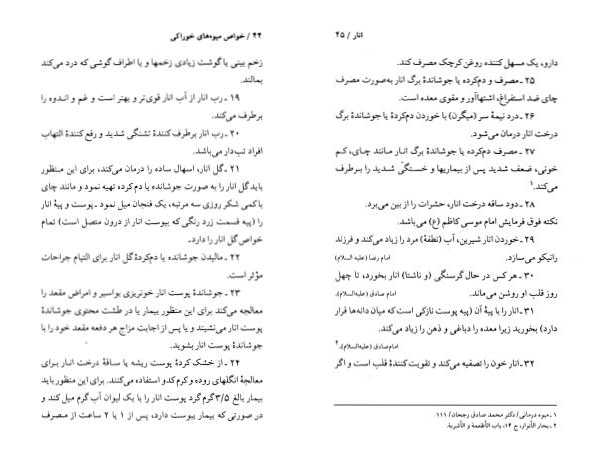 ۴۴ / خواص میوه‌های خوراکی
زخم بینی یا گوشت زیادی زخمها و یا اطراف گوشی که درد می‌کند
بمالند.
۱۹ ـ رب انار از آب انار قوی‌تر و بهتر است و غم و اندوه را
برطرف می‌کند.
۲۰ ـ رب انار برطرف کنندهٔ تشنگی شدید و رفع کنندهٔ التهاب
افراد تب‌دار می‌باشد.
۲۱ ـ گل انار، اسهال ساده را درمان می‌کند، برای این منظور
باید گل انار را به صورت جوشانده یا دم کرده تهیه نمود و مانند چای
با کمی شکر روزی سه مرتبه، یک فنجان میل نمود ـ پوست و پیهٔ انار
را (پیه قسمت زرد رنگی که بیوست انار از درون متصل است) تمام
خواص گل انار را دارد.ـ
۲۲ ـ مالیدن جوشانده یا دم‌کردهٔ گل انار برای التیام جراحات
مؤثر است.
۲۳ ـ جوشاندهٔ پوست انار خونریزی بواسیر و امراض مقعد را
معالجه می‌کند برای این منظور بیمار یا در طشت محتوی جوشاندهٔ
پوست انار می‌نشیند و یا پس از اجابت مزاج هر دفعه مقعد خود را با
جوشاندهٔ پوست انار بشوید.
۲۴ ـ از خشک کردهٔ پوست ریشه یا ساقهٔ درخت انار برای
معالجهٔ انگلهای روده و کرم کدو استفاده می‌کنند. برای این منظور باید
بیمار بالغ ۳/۵ گرم گرد پوست انار را با یک لیوان آب گرم میل کند و
در صورتی که بیمار یبوست دارد، پس از ۱ یا ۲ ساعت از مصرف
انار / ۴۵
دارو، یک مسهل کننده روغن کرچک مصرف کند.
۲۵ ـ مصرف و دم‌کرده یا جوشاندهٔ برگ انار به‌صورت مصرف
چای ضد استفراغ، اشتهاآور و مقوی معده است.
۲۶ ـ درد نیمهٔ سر (میگرن) با خوردن دم‌کردهٔ یا جوشاندهٔ برگ
درخت انار درمان می‌شود.
۲۷ ـ مصرف دم‌کرده یا جوشاندهٔ برگ انار مانند چای، کم
خونی، ضعف شدید پس از بیماریها و خستگی شدید را برطرف
می‌کند.۱
۲۸ ـ دود ساقه درخت انار، حشرات را از بین می‌برد.
نکته فوق فرمایش امام موسی کاظم (ع) می‌باشد.
۲۹ ـ خوردن انار شیرین، آب (نطفهٔ) مرد را زیاد می‌کند و فرزند
را نیکو می‌سازد. امام رضا (علیه السلام)
۳۰ ـ هر کس در حال گرسنگی (و ناشتا) انار بخورد، تا چهل
روز قلب او روشن می‌ماند. امام صادق (علیه‌السلام).
۳۱ ـ انار را با پیهٔ آن (پیه پوست نازکی است که میان دانه‌ها قرار
دارد) بخورید زیرا معده را دباغی و ذهن را زیاد می‌کند.
امام صادق (علیه‌السلام).۲
۳۲ ـ انار خون را تصفیه می‌کند و تقویت کنندهٔ قلب است و اگر
۱ ـ میوه درمانی / دکتر محمد صادق رجحان / ۱۱۱
۲ ـ بحار الأنوار، ج ۱۴، باب الأطعمة و الأشربة.